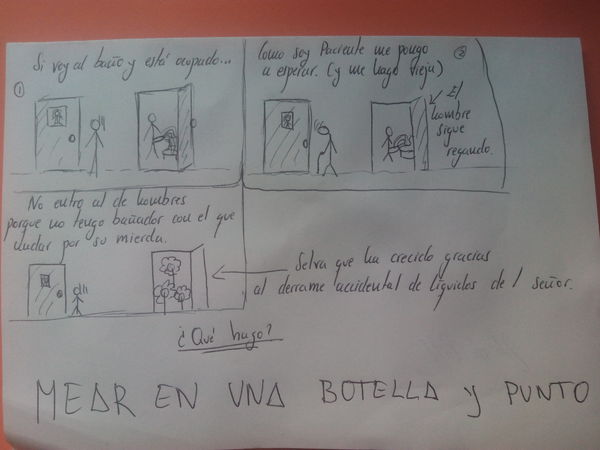 Si voy al baño y está ocupado...
①
Como soy Paciente me pongo
a esperar. (y me hago vieja)
②
El
hombre
sigue
regando.
No entro al de hombres
porque no tengo bañador con el que
nadar por su mierda.
Selva que ha crecido gracias
al derrame accidental de líquidos del señor.
¿Qué hago?
MEAR EN UNA BOTELLA y PUNTO